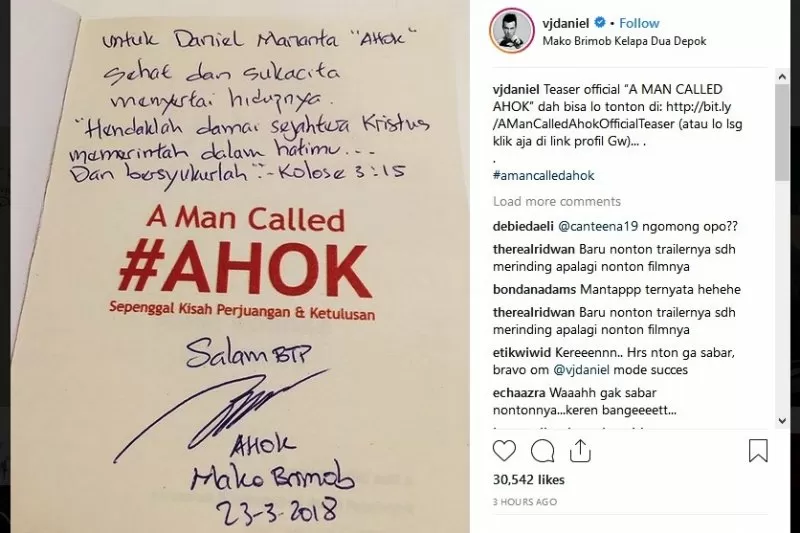 untuk Daniel Mananta "AHOK"
Sehat dan sukacita
menyertai hidupnya.
"Hendaklah damai sejahtera Kristus
memerintah dalam hatimu...
Dan bersyukurlah" - Kolose 3:15
A Man Called
#AHOK
Sepenggal Kisah Perjuangan & Ketulusan
Salam BTP
AHOK
Mako Brimob
23-3-2018
vjdaniel • Follow
Mako Brimob Kelapa Dua Depok
vjdaniel Teaser official "A MAN CALLED
AHOK" dah bisa lo tonton di: http://bit.ly
/AManCalledAhokOfficialTeaser (atau lo lsg
klik aja di link profil Gw)... .
.
#amancalledahok
Load more comments
debiedaeli @canteena19 ngomong opo??
therealridwan Baru nonton trailernya sdh
merinding apalagi nonton filmnya
bondanadams Mantappp ternyata hehehe
therealridwan Baru nonton trailernya sdh
merinding apalagi nonton filmnya
etikwiwid Kereeenn.. Hrs nton ga sabar,
bravo om @vjdaniel mode succes
echaazra Waaahh gak sabar
nontonnya...keren bangeeeett...
30,542 likes
3 HOURS AGO